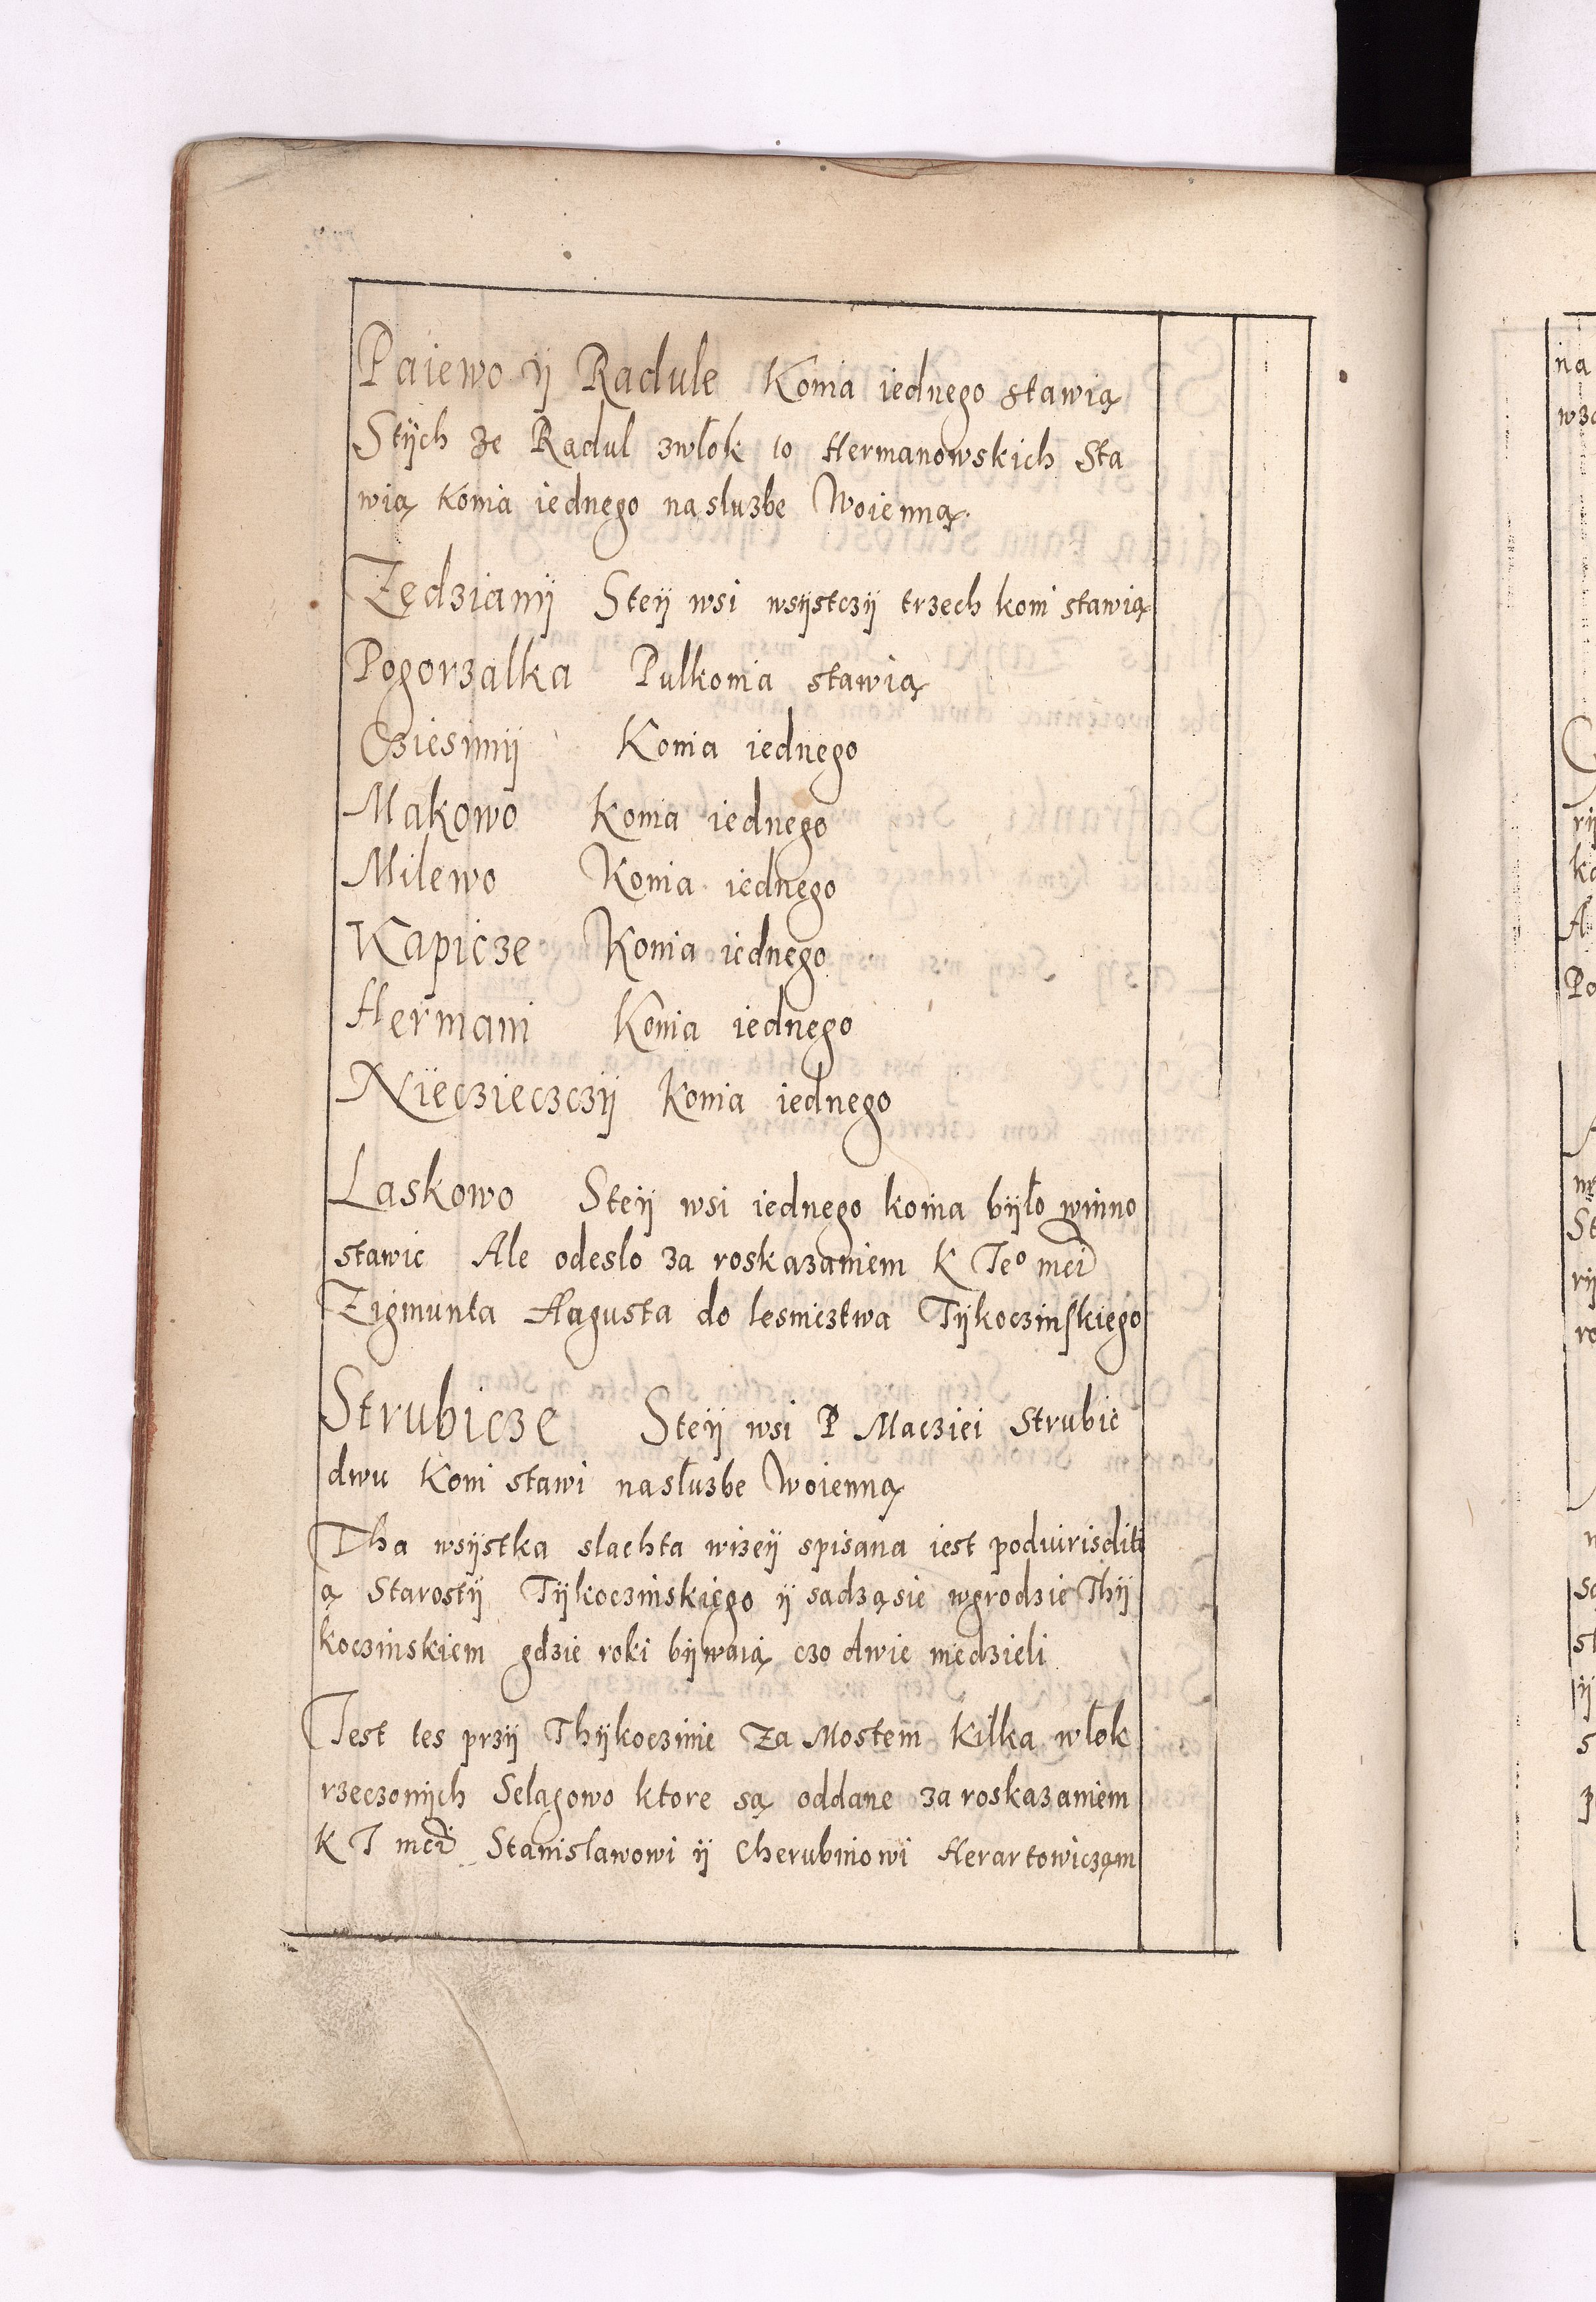 Paiewo ÿ Radule Konia iednego stawią
Stÿch że Radul zwłok 10 Hermanowskich Sta
wią Konia iednego na sluzbe Woienną.
Zędzianÿ Steÿ wsi wsÿstczÿ trzech koni stawią
Pogorzalka Pulkonia stawią
Cziesinnÿ Konia iednego
Makowo Konia iednego
Milewo Konia iednego
Kapicze Konia iednego
Hermani Konia iednego
Nieczieczczÿ Konia iednego
Laskowo Steÿ wsi iednego konia bÿło winno
stawic Ale odeslo za roskazaniem K Jeo mci
Zigmunta Augusta do lesnicztwa Tÿkoczinskiego
Strubicze Steÿ wsi P Macziei Strubic
dwu Koni stawi na słuzbe Woienną
Tha wsÿstka slachta wizeÿ spisana iest podiurisditi
ą Starostÿ Tÿkoczinskiego ÿ sadząsie wgrodzie Thÿ
koczinskiem gdzie roki bÿwaią czo dwie niedzieli
Jest tes przÿ Thÿkoczinie Za Mostem Kilka włok
rzeczonÿch Selagowo ktore są oddane za roskazaniem
K J mci Stanisławowi ÿ Cherubinowi Herartowicząm
na